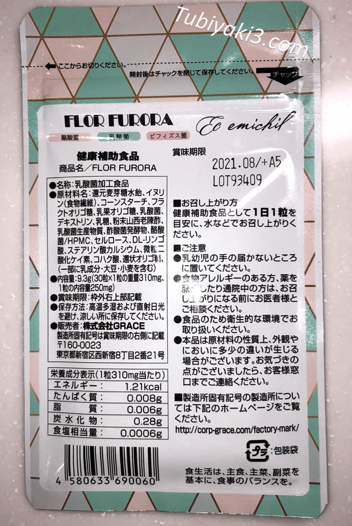 Tubiyaki3.com
ここからお切りください。
開封後はチャックを閉じて保存してください。
チャック
FLOR FURORA
酪酸菌 乳酸菌 ビフィズス菌
emichif
健康補助食品
商品名/FLOR FURORA
賞味期限
2021.08/+A5
LOT93409
●名称:乳酸菌加工食品
●原材料名:還元麦芽糖水飴、イヌリン(食物繊維)、コーンスターチ、フラクトオリゴ糖、乳果オリゴ糖、乳酸菌、デキストリン、乳糖、粉末山西老陳酢、乳酸菌生産物質、酢酸菌発酵物、酪酸菌/HPMC、セルロース、DL-リンゴ酸、ステアリン酸カルシウム、微粒二酸化ケイ素、コハク酸、環状オリゴ糖、(一部に乳成分・大豆・小麦を含む)
●内容量:9.3g(30粒×1粒の重量310mg、1粒の内容量250mg)
●賞味期限:枠外右上部記載
●保存方法:高温多湿および直射日光を避け、涼しい所に保存してください。
●販売者:株式会社GRACE
製造所固有記号は賞味期限の右側に記載
〒160-0023
東京都新宿区西新宿8丁目2番21号
栄養成分表示(1粒310mg当たり)
エネルギー: 1.21kcal
たんぱく質: 0.008g
脂質: 0.006g
炭水化物: 0.28g
食塩相当量: 0.0006g
4 580633 690060
■お召し上がり方
健康補助食品として1日1粒を
目安に、水などでお召し上がりく
ださい。
■ご注意
●乳幼児の手の届かないところ
に置いてください。
●食物アレルギーのある方、薬を
服用したり通院中の方は、お召し
上がりになる前にお医者様とご
相談ください。
●食品のため衛生的な環境でお
取り扱いください。
●本品は原材料の性質上、外観や
においに多少の違いが生じる
場合がございます。お気づきの
点がございましたら、お客様窓
口までご連絡ください。
■製造所固有記号の製造所につい
ては下記のホームページをご覧
ください。
http://corp-grace.com/factory-mark/
プラ
:包装袋
食生活は、主食、主菜、副菜を
基本に、食事のバランスを。